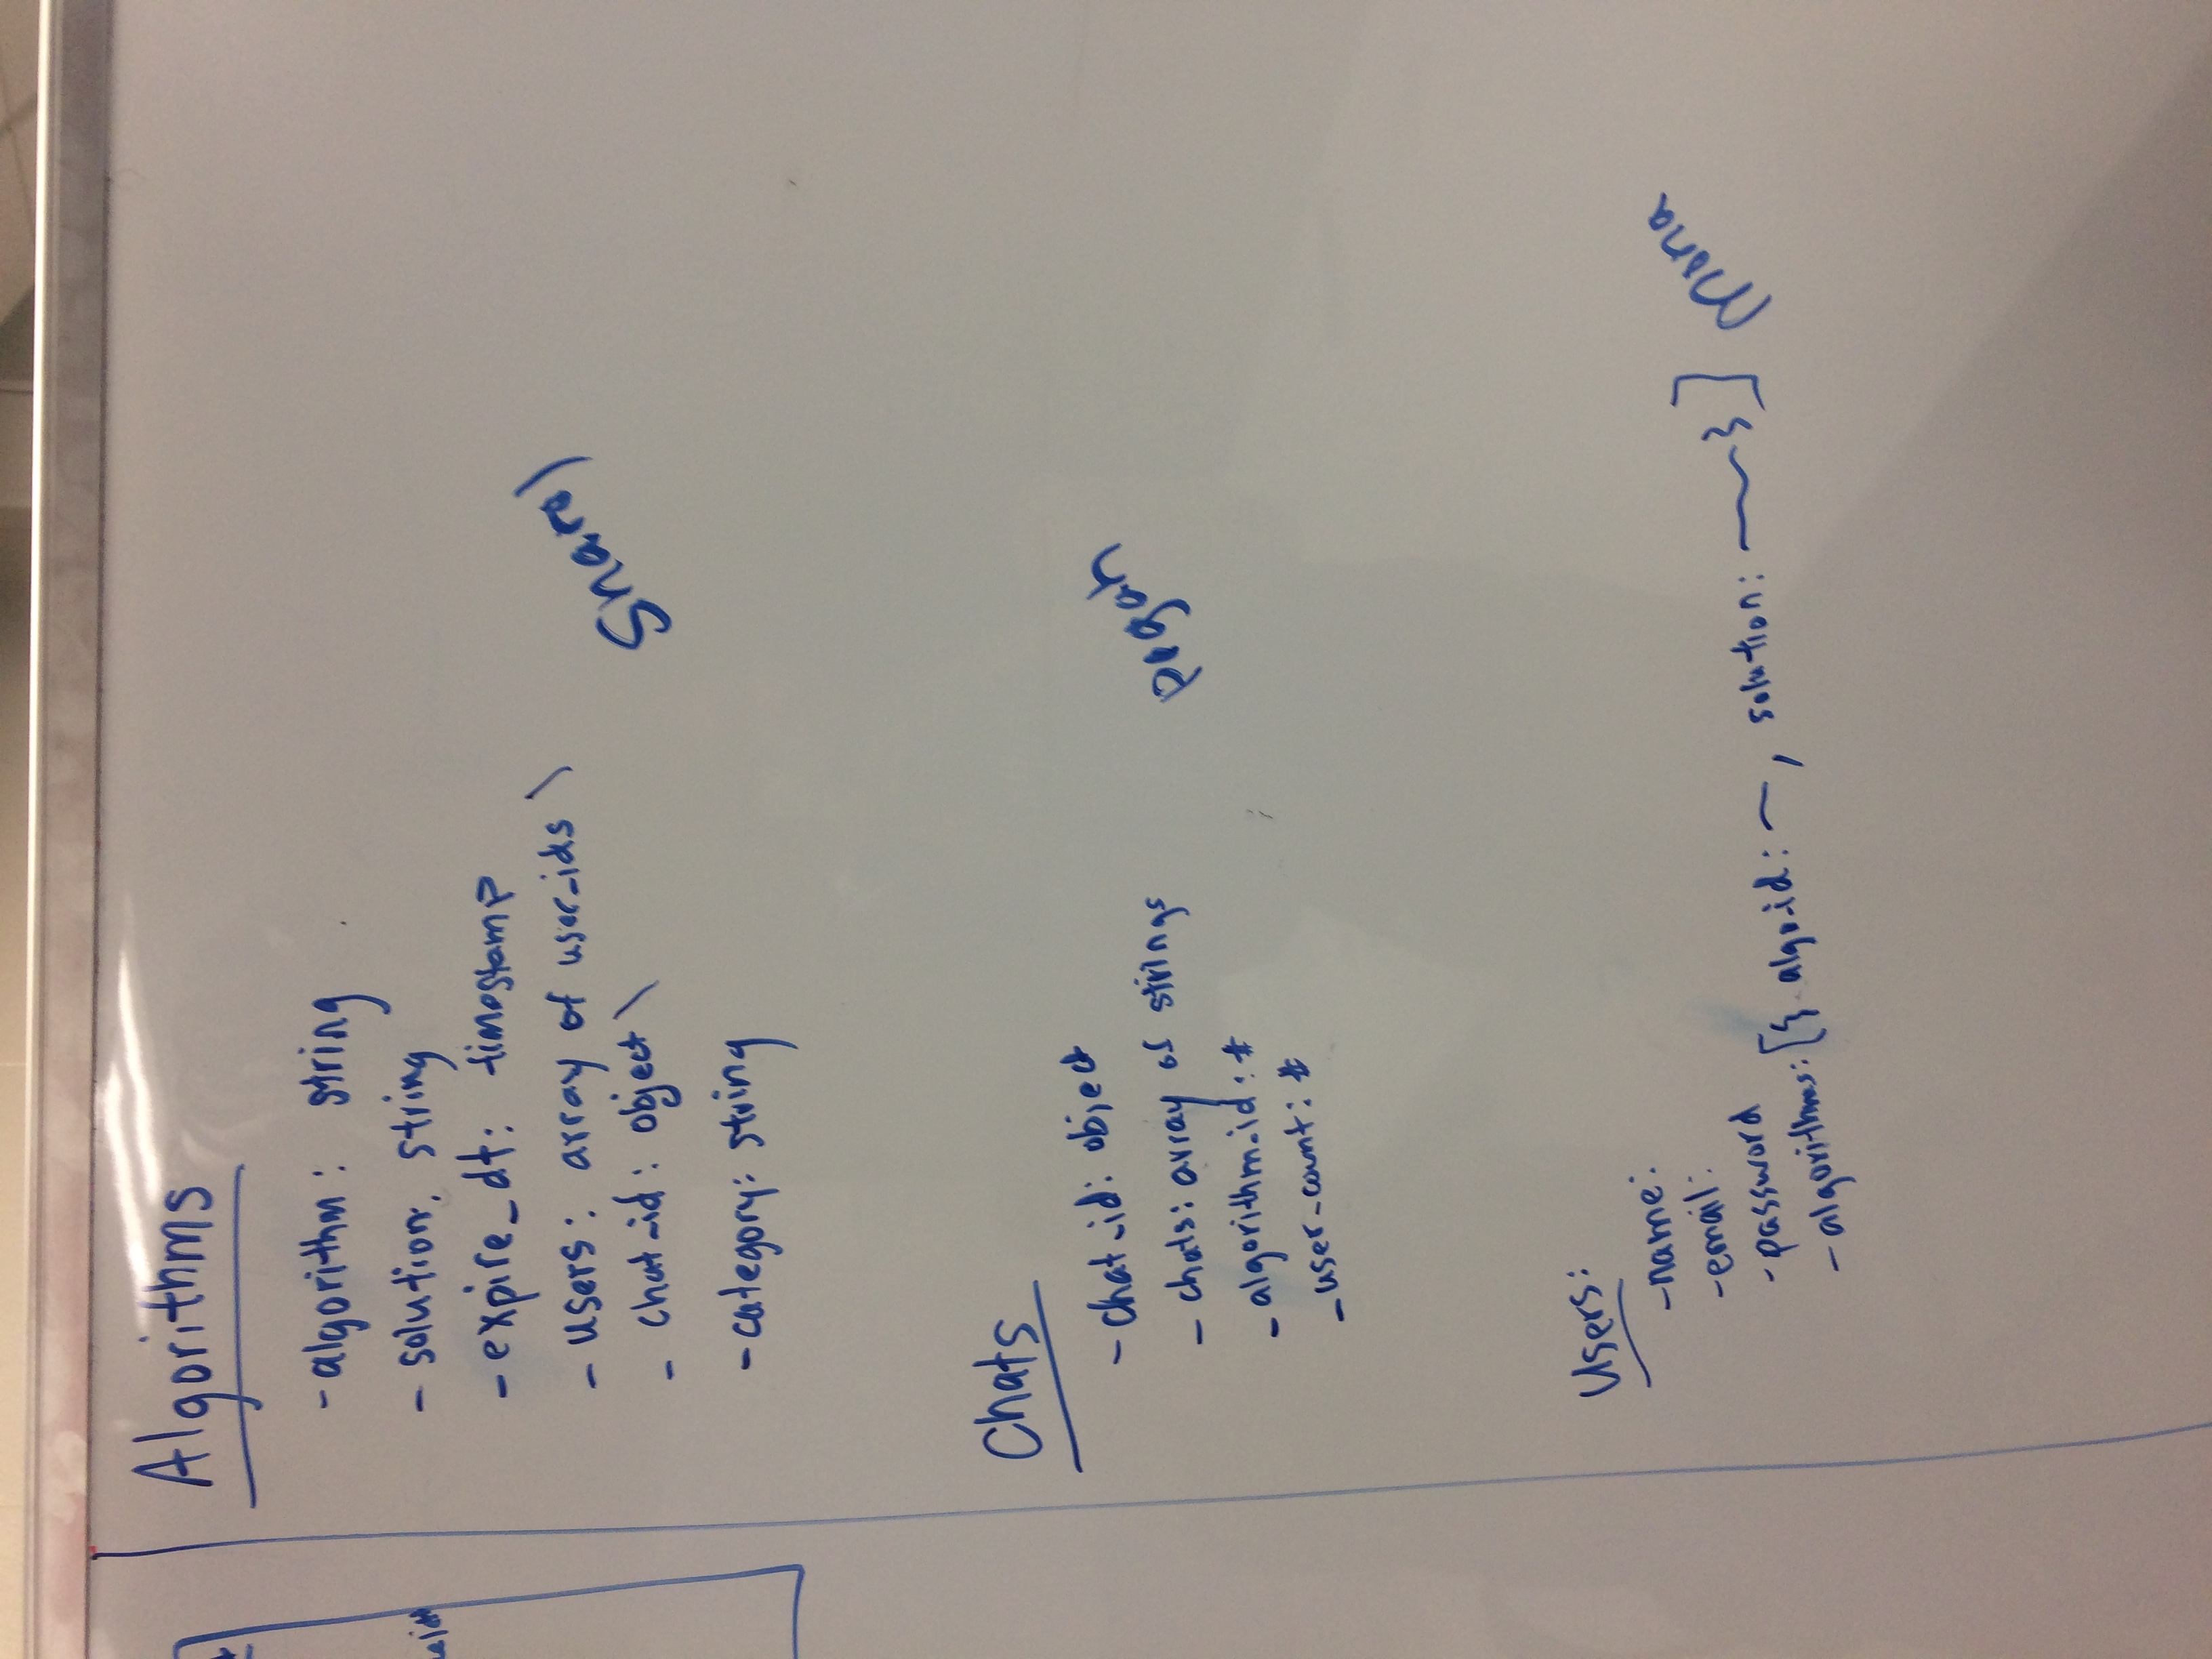 Algorithms
- algorithm: string
- solution: string
- expire_dt: timestamp
- users: array of user_ids \
- chat_id: object \
- category: string
Chats
- chat_id: object
- chats: array of strings
- algorithm_id: #
- user_count: #
pegah
Users:
- name:
- email:
- password
- algorithms: [{ algo_id: ~, solution: ~~}]
mona